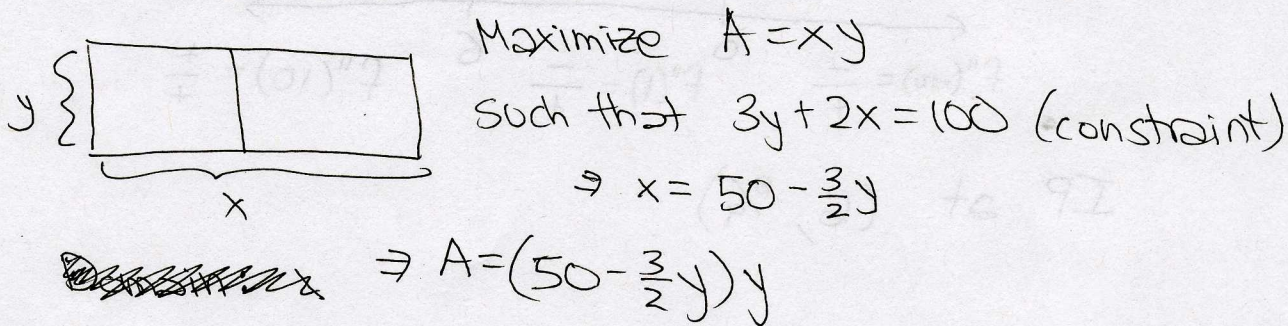 Maximize A = xy
y
such that 3y + 2x = 100 (constraint)
⇒ x = 50 - 3/2 y
x
⇒ A = (50 - 3/2 y) y